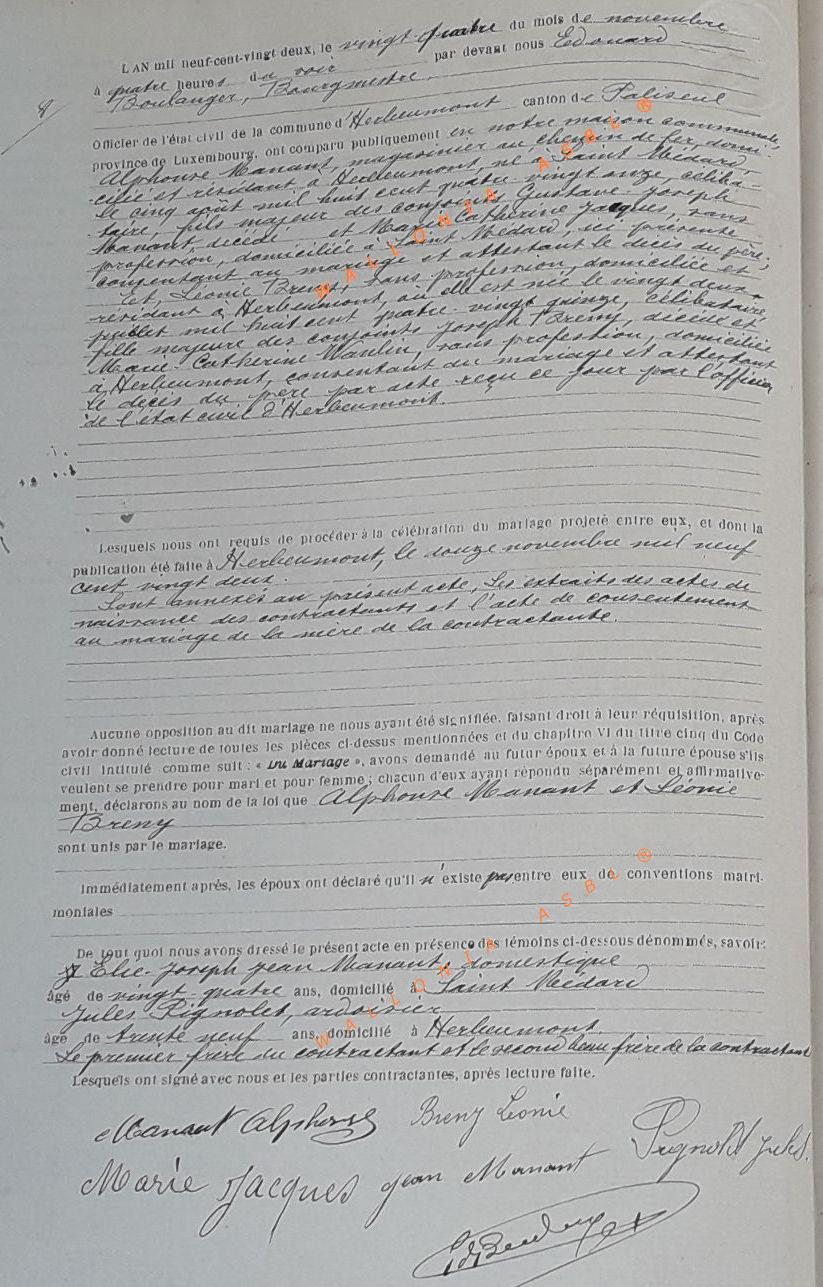 8
L'AN mil neuf-cent-vingt deux, le vingt-quatre du mois de novembre
à quatre heures du soir par devant nous Edouard
Boulanger, Bourgmestre.
Officier de l'état civil de la commune d'Herbeumont canton de Paliseul
province de Luxembourg, ont comparu publiquement en notre maison communale,
Alphonse Manant, magasinier au chemin de fer, domi-
cilié et résidant à Herbeumont, né à Saint Médard,
le cinq août mil huit cent quatre-vingt onze, céliba-
taire, fils majeur des conjoints Gustave-Joseph
Manant, décédé et Marie Catherine Jacques, sans
profession, domiciliée à Saint Médard, ici présente
consentant au mariage et attestant le décès du père;
Et, Léonie Breny, sans profession, domiciliée et
résidant à Herbeumont, où elle est née le vingt deux
juillet mil huit cent quatre-vingt quinze, célibataire,
fille majeure des conjoints Joseph Breny, décédé et
Marie-Catherine Wanlin, sans profession, domiciliée
à Herbeumont, consentant au mariage et attestant
le décès du père par acte reçu ce jour par l'officier
de l'état civil d'Herbeumont.
Lesquels nous ont requis de procéder à la célébration du mariage projeté entre eux, et dont la
publication été faite à Herbeumont, le douze novembre mil neuf
cent vingt deux.
Sont annexés au présent acte, les extraits des actes de
naissance des contractants et l'acte de consentement
au mariage de la mère de la contractante.
Aucune opposition au dit mariage ne nous ayant été signifiée, faisant droit à leur réquisition, après
avoir donné lecture de toutes les pièces ci-dessus mentionnées et du chapitre VI du titre cinq du Code
civil intitulé comme suit : « Du Mariage », avons demandé au futur époux et à la future épouse s'ils
veulent se prendre pour mari et pour femme ; chacun d'eux ayant répondu séparément et affirmative-
ment, déclarons au nom de la loi que Alphonse Manant et Léonie
Breny
sont unis par le mariage.
Immédiatement après, les époux ont déclaré qu'il n'existe pas entre eux de conventions matri-
moniales
De tout quoi nous avons dressé le présent acte en présence des témoins ci-dessous dénommés, savoir:
Elie-Joseph Jean Manant, domestique
âgé de vingt-quatre ans, domicilié à Saint Médard
Jules Pignolet, ardoisier
âgé de trente neuf ans, domicilié à Herbeumont.
Le premier frère du contractant et le second beau frère de la contractant
Lesquels ont signé avec nous et les parties contractantes, après lecture faite.
Manant Alphonse Breny Léonie
Marie Jacques Jean Manant Pignolet Jules.
WALLONIA ASBL ®
WALLONIA ASBL ®